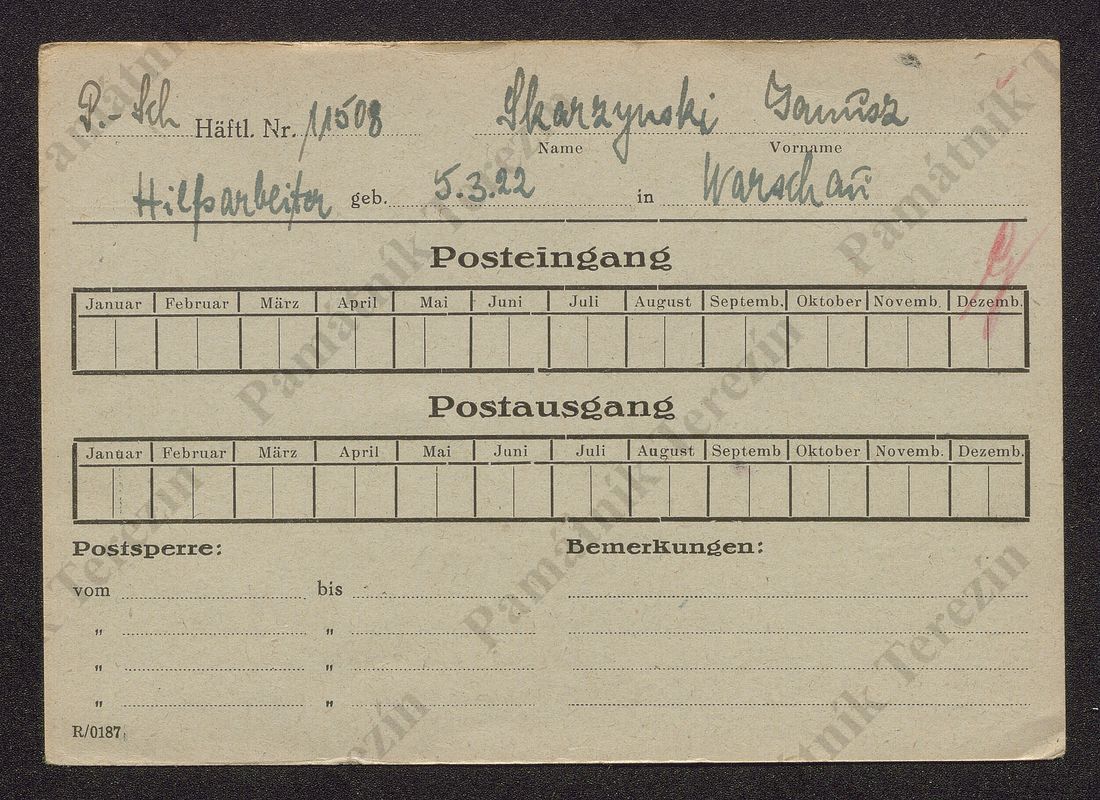 P.-Sch Häftl. Nr. 11508 Skarzynski Janusz
Name Vorname
Hilfsarbeiter geb. 5.3.22 in Warschau
Posteingang
Januar Februar März April Mai Juni Juli August Septemb. Oktober Novemb. Dezemb.
Postausgang
Januar Februar März April Mai Juni Juli August Septemb Oktober Novemb. Dezemb.
Postsperre: Bemerkungen:
vom bis
" "
" "
" "
R/0187
Památník Terezín